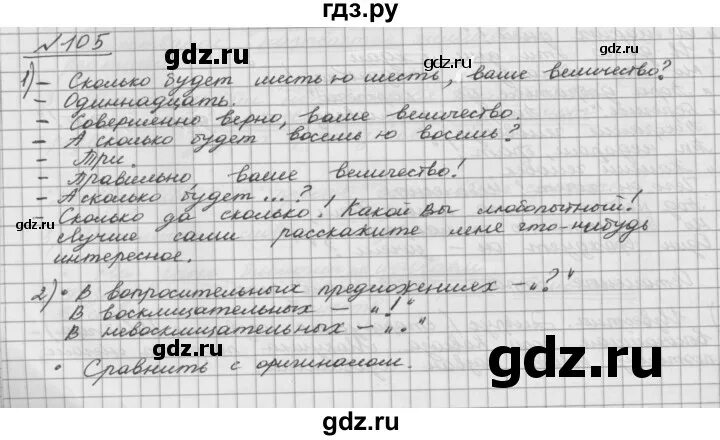 гдз.ру
№105
gdz.ru
gdz.ru
1) – Сколько будет шестью шесть, ваше величество?
– Одиннадцать.
– Совершенно верно, ваше величество.
– А сколько будет восемью восемь?
– Три.
gdz.ru
– Правильно ваше величество!
– А сколько будет ... ?
gdz.ru
– Сколько да сколько! Какой Вы любопытный!
Лучше сами расскажите мне что-нибудь
интересное.
gdz.ru
2) • В вопросительных предложениях – „?“
В восклицательных – „!“
В невосклицательных – „.“
gdz.ru
• Сравнить с оригиналом.
gdz.ru
gdz.ru